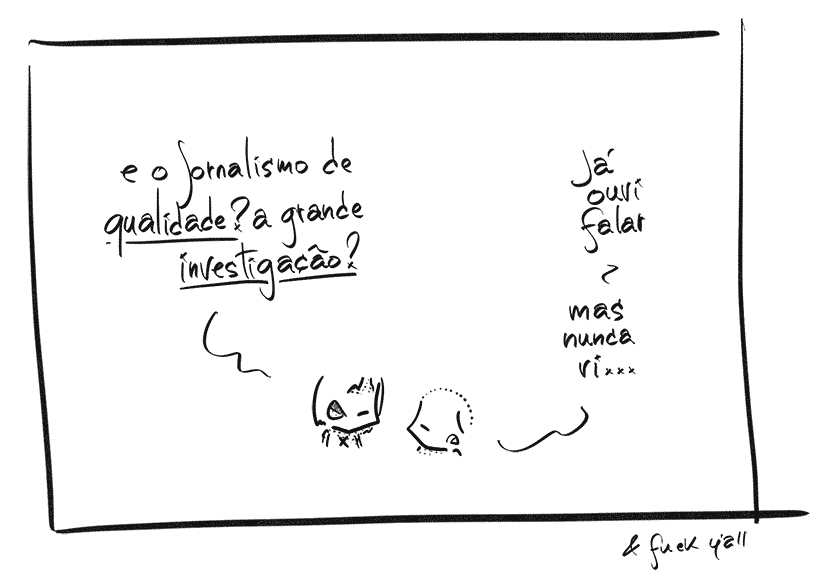 e o jornalismo de
qualidade? a grande
investigação?
já
ouvi
falar
,
mas
nunca
vi...
& fuck y'all